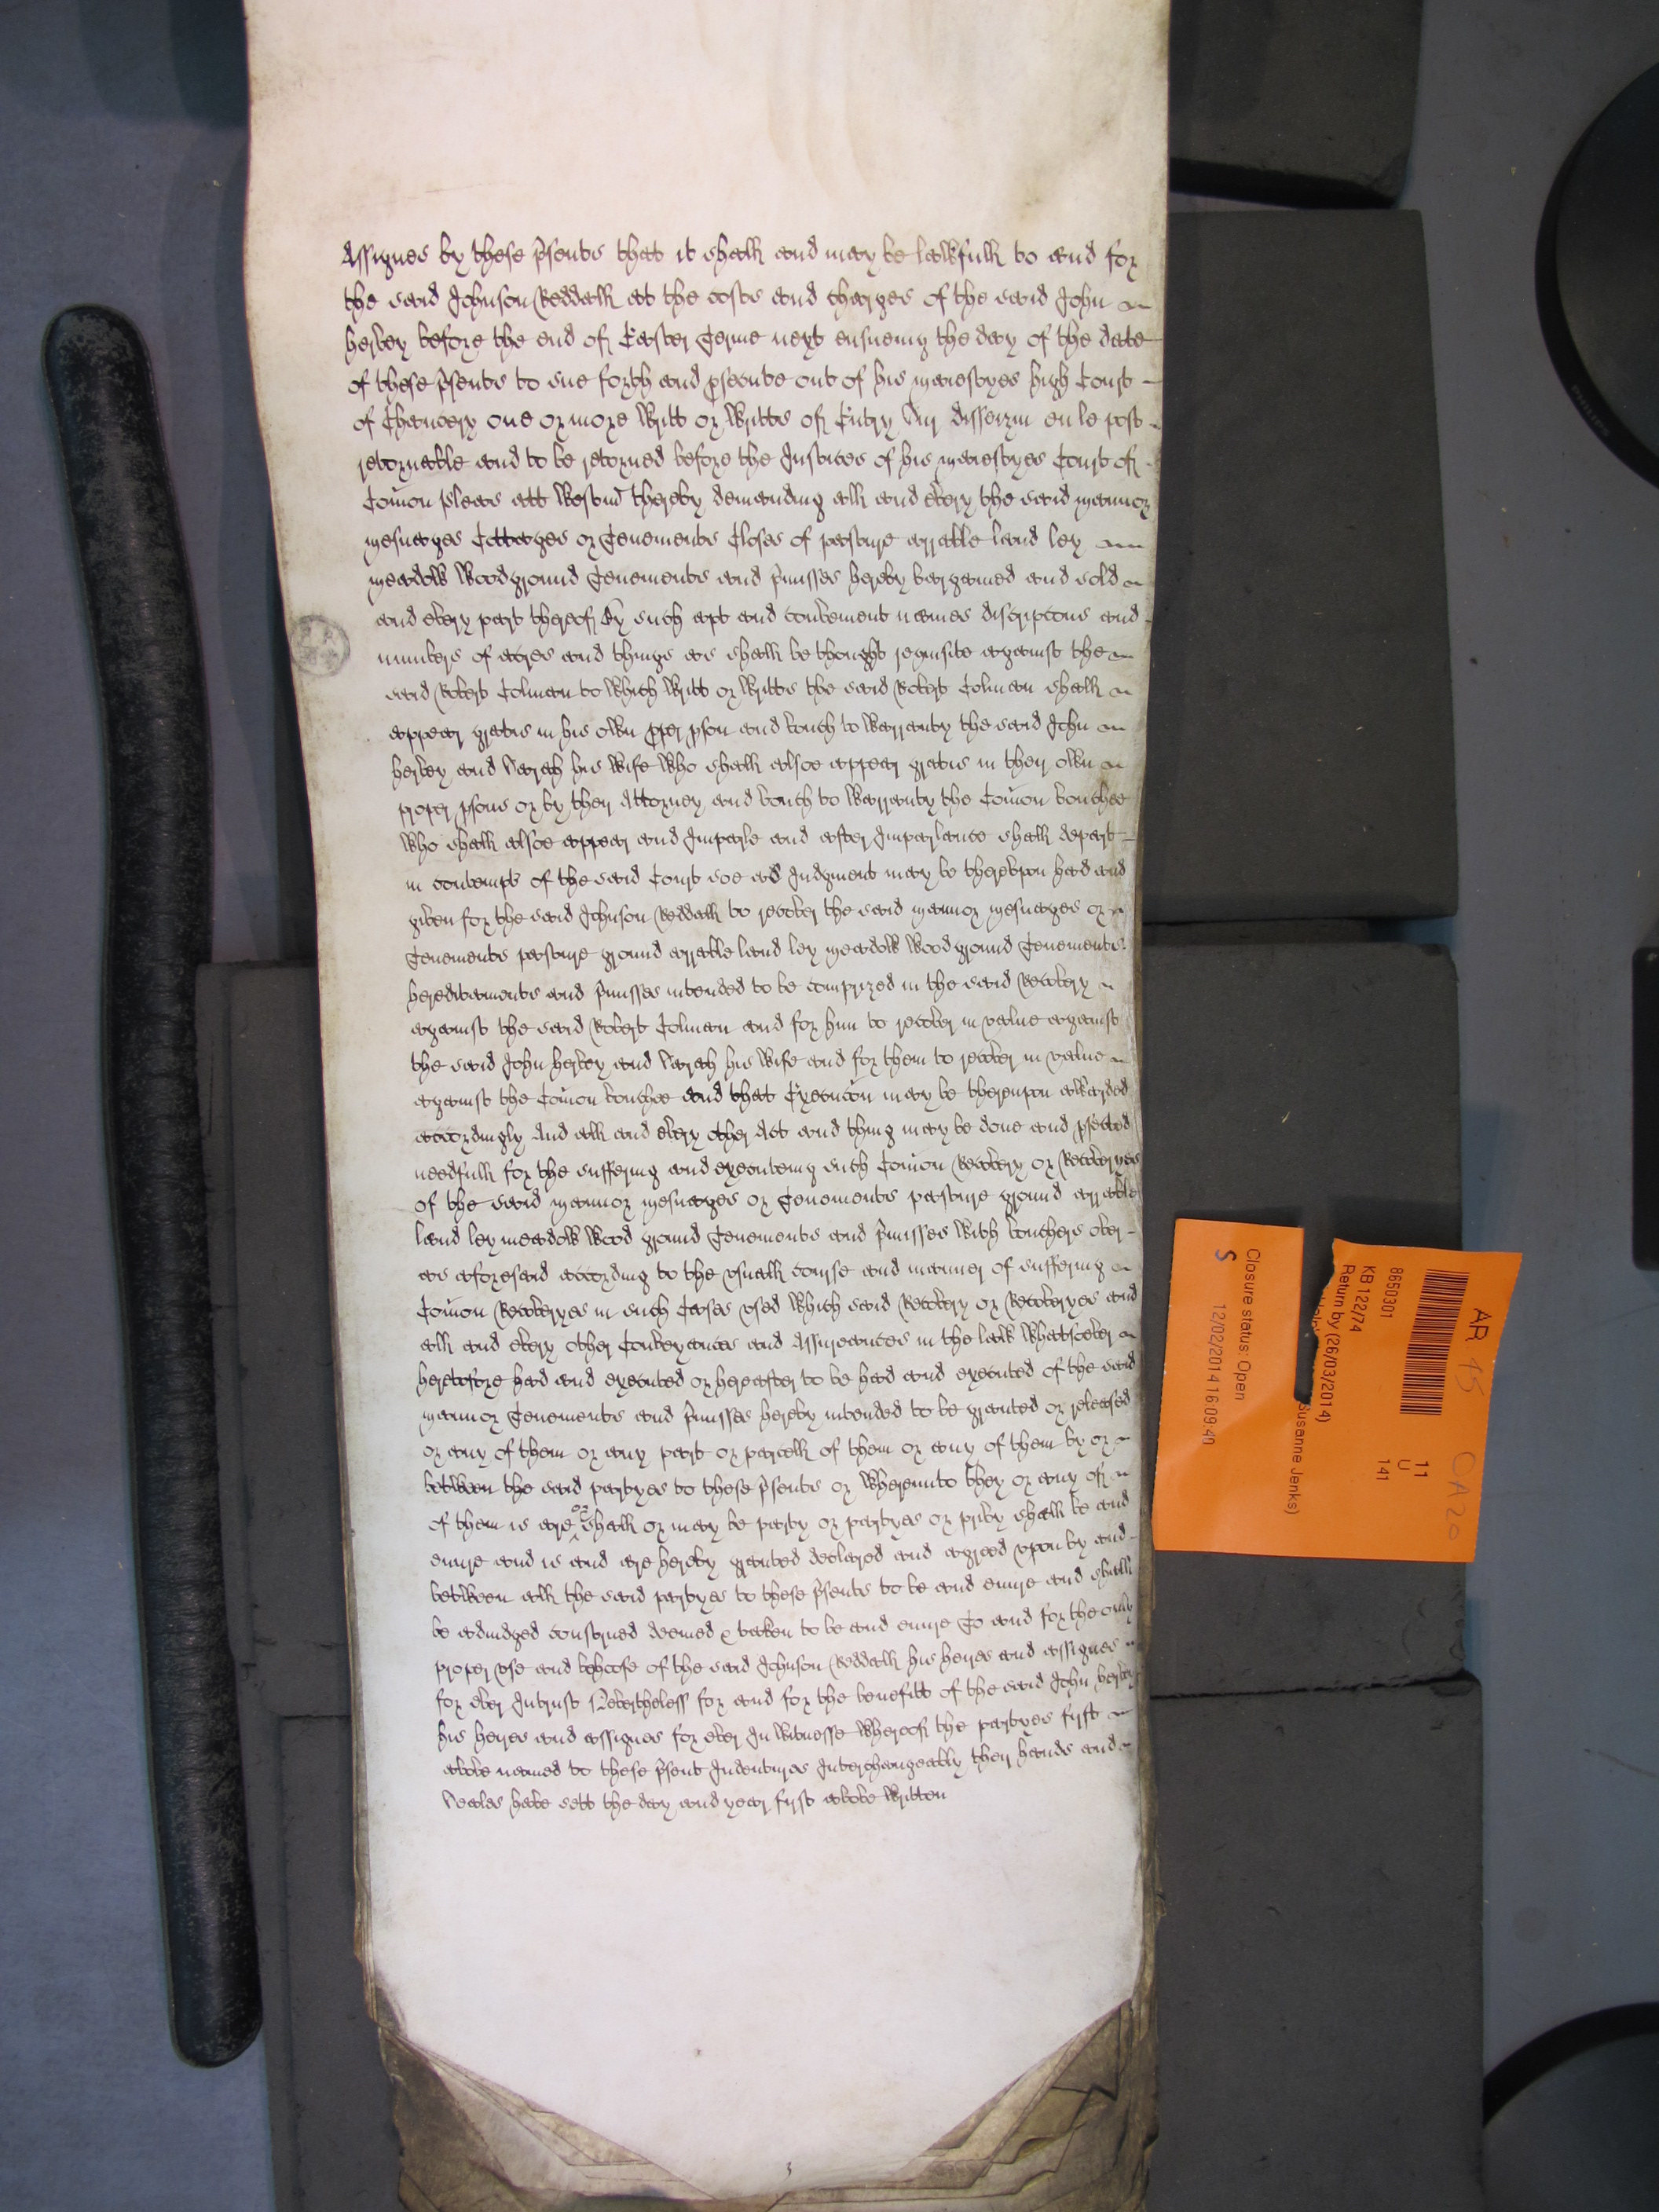 Assignes by these p̃sents that it shall and may be lawfull to and for
the said Johnson Reddall at the costs and charges of the said John
Hervey before the end of Easter Terme next ensueing the day of the date
of these p̃sents to sue forth and p̱secute out of his Maiestyes high Court
of Chancery one or more Writt or Writts of Entry Sur disseizin en le post
retornable and to be retorned before the Justices of his Maiestyes Court of
Com̃on Pleas att Westm̃ thereby demanding all and every the said Mannor
Mesuages Cottages or Tenements Closes of pasture arrable land ley
meadow Woodground Tenements and p̃misses hereby bargained and sold
and every part thereof By such apt and convenient names discripcons and
numbers of acres and things as shall be thought requisite against the
said Robert Colman to which Writt or Writts the said Robert Colman shall
appear gratis in his own p̱per p̱son and vouch to Warranty the said John
Hervey and Sarah his Wife Who shall alsoe appear gratis in their own
proper p̱sons or by their Attorney and vouch to Warranty the Com̃on vouchee
Who shall alsoe appear and Imparle and after Imparlance shall depart
in contempt of the said Court soe as Judgment may be thereupon had and
given for the said Johnson Reddall to recover the said Mannor Mesuages or
Tenements pasture ground arrable land ley meadow Wood ground Tenements
hereditaments and p̃misses intended to be comprized in the said Recovery
against the said Robert Colman and for him to recover in value against
the said John Hervey and Sarah his Wife and for them to recover in value
against the Com̃on vouchee and that Execuc̃on may be thereupon awarded
accordingly And all and every other Act and thing may be done and p̱fected
needfull for the suffering and executeing such Com̃on Recovery or Recoveryes
of the said Mannor Mesuages or Tenements pasture ground arrable
land ley meadow Wood ground Tenements and p̃misses with vouchers over
as aforesaid according to the usuall course and manner of suffering
Com̃on Recoveryes in such Cases used Which said Recovery or Recoveryes and
all and every other Conveyances and Assureances in the law Whatsoever
heretofore had and executed or hereafter to be had and executed of the said
Mannor Tenements and p̃misses hereby intended to be granted or released
or any of them or any part or parcell of them or any of them by or
between the said partyes to these p̃sents or Whereunto they or any of
of them is are or shall or may be party or partyes or privy shall be and
enure and is and are hereby granted declared and agreed upon by and
between all the said partyes to these p̃sents to be and enure and shall
be adiudged construed deemed & taken to be and enure To and for the only
proper use and behoofe of the said Johnson Reddall his heires and assignes
for ever Intrust Nevertheless for and for the benefitt of the said John Hervey
his heires and assignes for ever In Witnesse Whereof the partyes first
above named to these p̃sent Indentures Interchangeably their hands and
Seales have sett the day and year first above Written
AR 15 CA20
8650301
KB 122/74
Return by (26/03/2014)
Susanne Jenks)
11
U
141
Closure status: Open
S
12/02/2014 16:09:40
PHILIPS